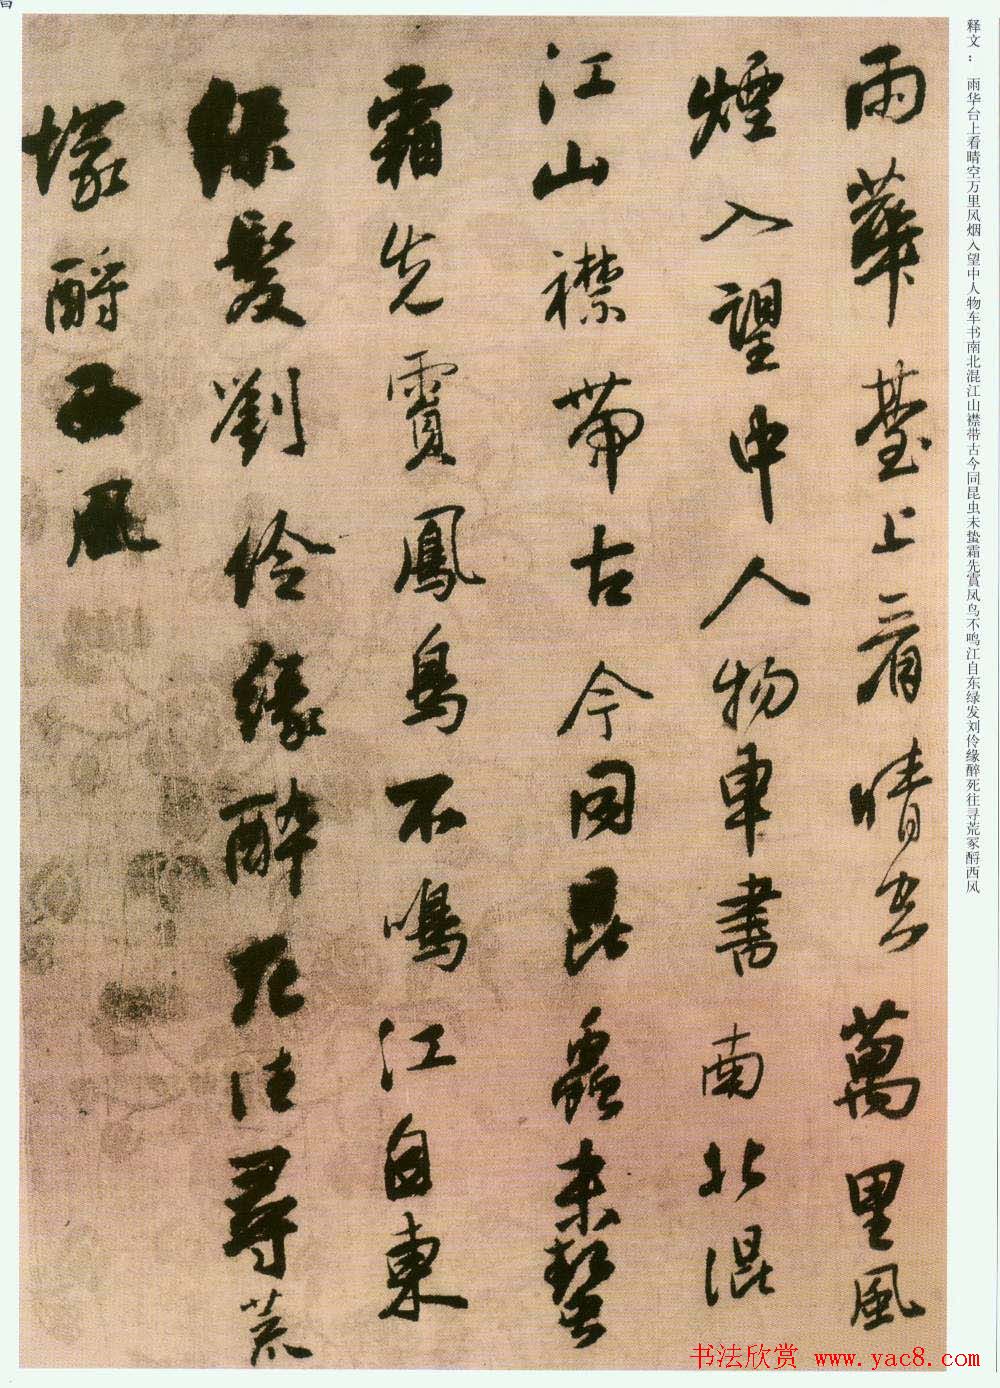 释文： 雨华台上看晴空万里风烟入望中人物车书南北混江山襟带古今同昆虫未蛰霜先賈凤鸟不鸣江自东绿发刘伶缘醉死往寻荒冢酹西风
雨華臺上看晴空萬里風
煙入望中人物車書南北混
江山襟帶古今同昆蟲未蟄
霜先賈鳳鳥不鳴江自東
綠髮劉伶緣醉死往尋荒
塚酹西風
书法欣赏 www.yac8.com